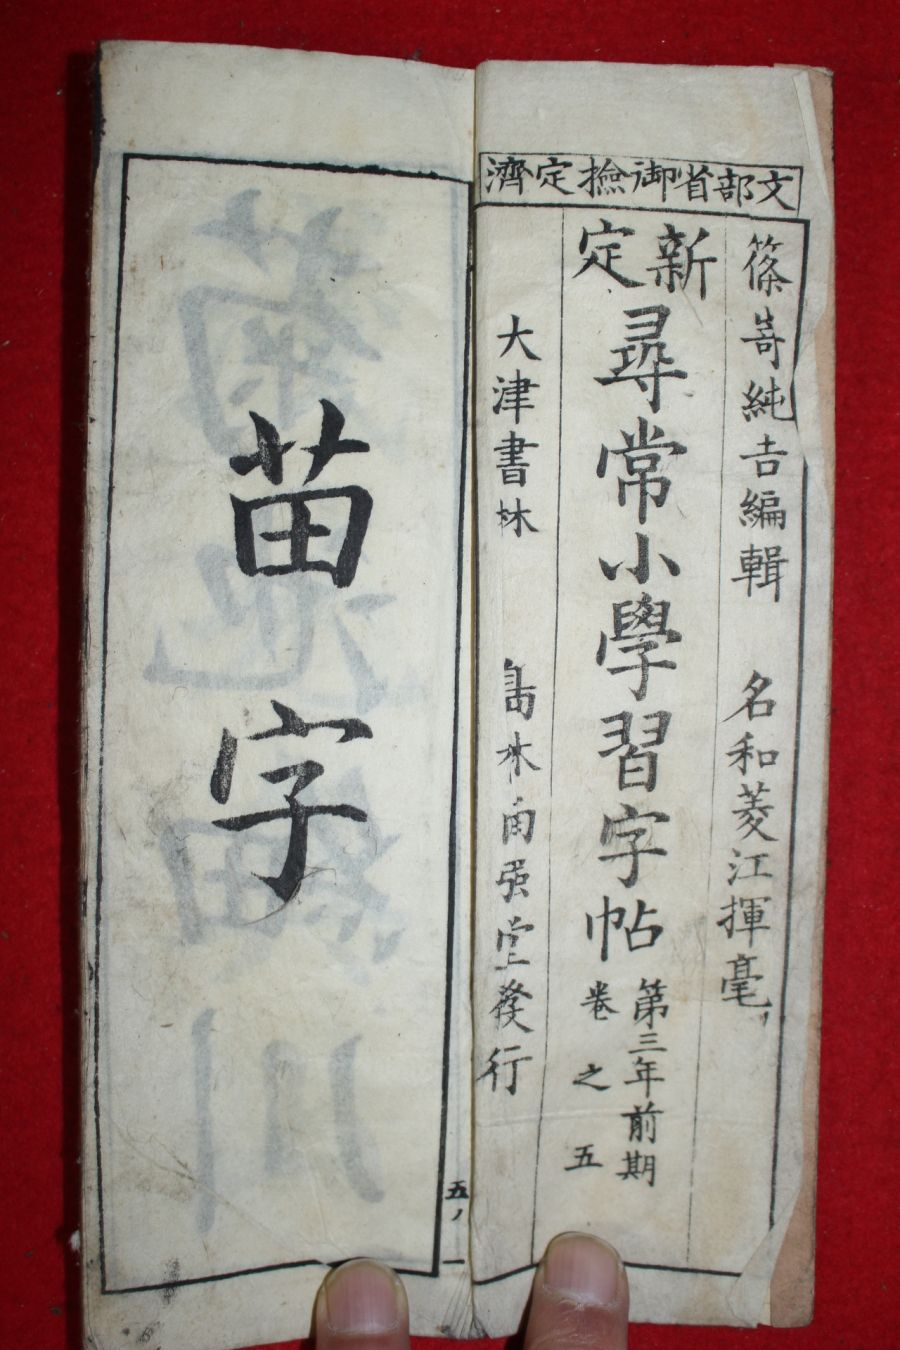 文部省御撿定濟
篠嵜純吉編輯　名和菱江揮毫
新定
尋常小學習字帖
第三年前期
卷之五
大津書林　島林甬强堂發行
苗字
五ノ一